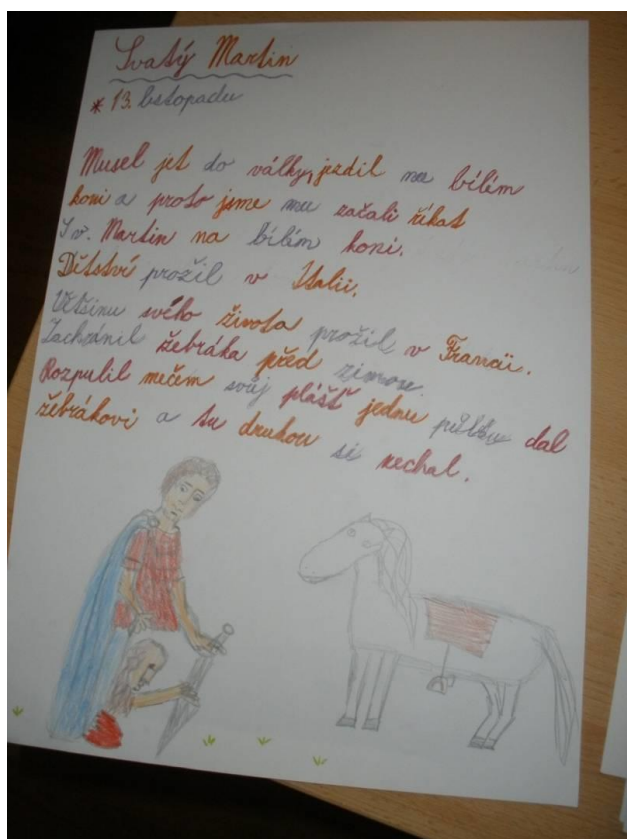 Svatý Martin
* 13. listopadu
Musel jet do války, jezdil na bílím
koni a proto jsme mu začali říkat
Sv. Martin na bílím koni.
Dětství prožil v Italii.
Většinu svého života prožil v Francii.
Zachránil žebráka před zimou.
Rozpulil mečem svůj plášť jednu půlku dal
žebrákovi a tu druhou si nechal.